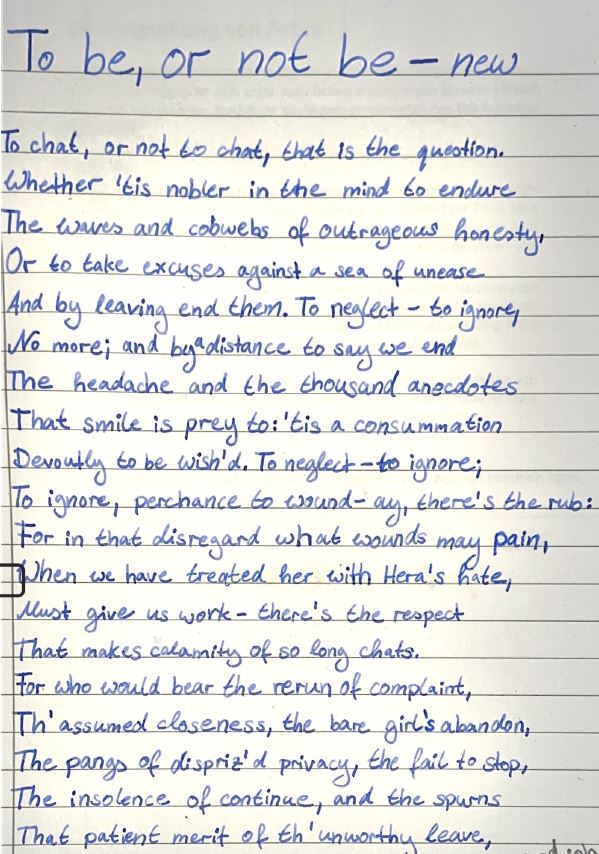 To be, or not be – new
To chat, or not to chat, that is the question.
Whether 'tis nobler in the mind to endure
The waves and cobwebs of outrageous honesty,
Or to take excuses against a sea of unease
And by leaving end them. To neglect – to ignore,
No more; and by a distance to say we end
The headache and the thousand anecdotes
That smile is prey to: 'tis a consummation
Devoutly to be wish'd. To neglect – to ignore;
To ignore, perchance to wound – ay, there's the rub:
For in that disregard what wounds may pain,
When we have treated her with Hera's hate,
Must give us work – there's the respect
That makes calamity of so long chats.
For who would bear the rerun of complaint,
Th' assumed closeness, the bare girl's abandon,
The pangs of dispriz'd privacy, the fail to stop,
The insolence of continue, and the spurns
That patient merit of th' unworthy leave,